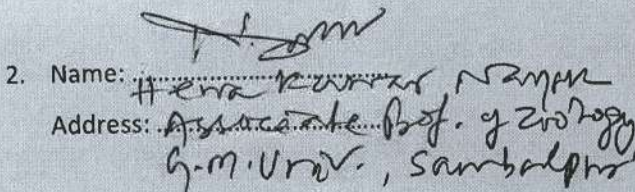 2. Name: Hema Kumar Nayak
Address: Associate Prof. of Zoology
G.M. Univ., Sambalpur